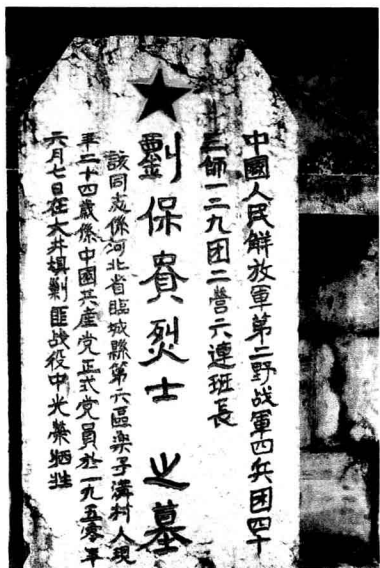 中國人民解放軍第二野战軍四兵团四十
三师一二九团二營六連班長
劉保賚烈士之墓
該同志係河北省臨城縣第六區栾子溝村人現
年二十四歲係中國共産党正式党員於一九五零年
六月七日在大井埧剿匪战役中光荣牺牲